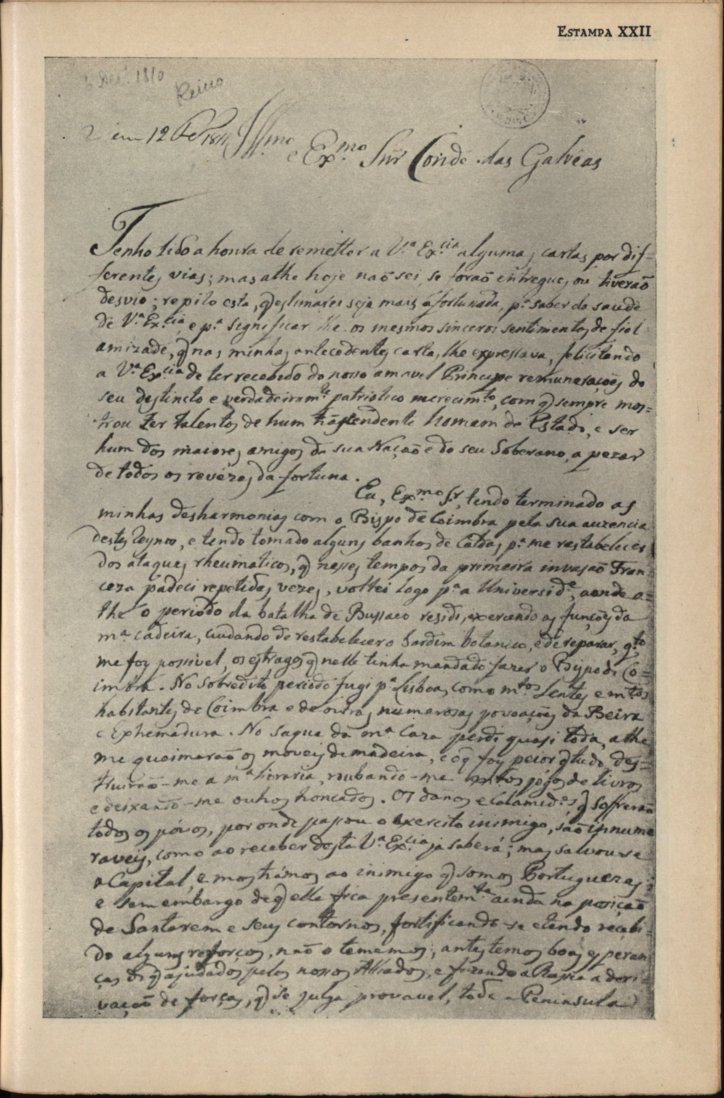 Estampa XXII
Dezº 1810
Reino
2ª em 12
Illmo e Exmo Snr Conde das Galveas
Tenho tido a honra de remetter a Vª Excia algumas cartas por dif-
ferentes vias; mas athe hoje naõ sei se foraõ entregues, ou tiveraõ
desvio; repito esta, q estimarei seja mais afortunada, pª saber da saude
de Vª Excia e pª significar lhe os mesmos sinceros sentimentos de fiel
amizade, q nas minhas antecedentes cartas lhe expressava, felicitando
a Vª Excia de ter recebido do nosso amavel Principe remuneraçoẽs do
seu destincto e verdadeiramte patriotico merecimto, com q sempre mos-
trou ter talentos de hum homem de Estado, e ser
hum dos maiores amigos da sua Naçaõ e do seu Soberano, a pezar
de todos os revezes da fortuna.
Eu, Exmo Sr, tendo terminado as
minhas desharmonias com o Bispo de Coimbra pela sua auzencia
deste Reyno, e tendo tomado alguns banhos de Caldas pª me restabelecer
dos ataques rheumaticos, q nesses tempos da primeira invasaõ Fran-
ceza padeci repetidas vezes, voltei logo pª a Universidᵉ, aonde a-
the o periodo da batalha de Bussaco residi, exercendo as funçoẽs da
mª cadeira, cuidando de restabelecer o Jardim botanico, e de reparar, qto
me foy possivel, os estragos q nelle tinha mandado fazer o Bispo de Co-
imbra. No sobredito periodo fugi pª Lisboa, como mtas gentes e mtos
habitantes de Coimbra e de outras numerosas povoaçoẽs da Beira
e Exhemadura. No saque da mª Caza perdi quasi tudo, athe
me queimaraõ os moveis de madeira, e o q foy peior q tudo, des-
truiraõ-me a mª livraria, roubando-me mtos jogos de livros
e deixando-me outros troncados. Os danos e calamides q soffreraõ
todos os povos, por onde passou o exercito inimigo, saõ innume
raveis, como ao receber desta Vª Excia já saberá; mas salvou-se
a Capital, e mostrámos ao inimigo q somos Portuguezes;
e sem embargo de q elle fica presentemte ainda na posiçaõ
de Santarem e seus contornos, fortificando-se e tendo recebi-
do alguns reforços, naõ o tememos; antes temos boas esperan
ças de q ajudados pelos nossos Alliados, e fizendo a Russia a deri-
vaçaõ de forças, q se julga provavel, toda a Peninsula